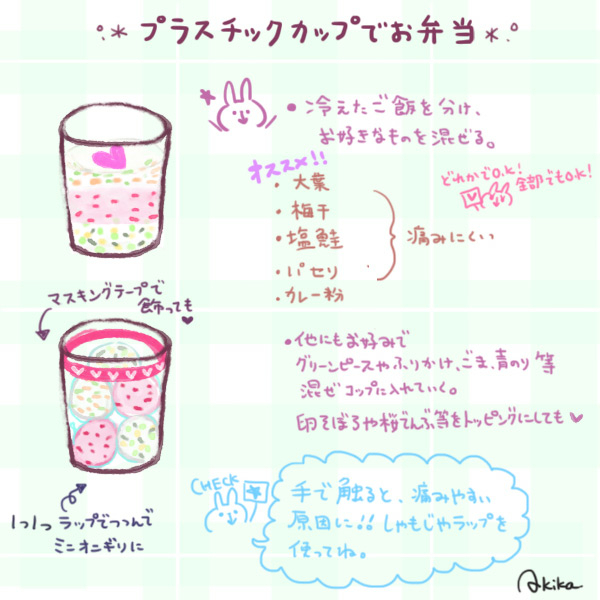 プラスチックカップでお弁当
• 冷えたご飯を分け、
お好きなものを混ぜる。
オススメ!!
・大葉
・梅干
・塩鮭
・パセリ
・カレー粉
痛みにくい
どれかでO.K!
全部でもO.K!
マスキングテープで
飾っても
• 他にもお好みで
グリーンピースやふりかけ、ごま、青のり等
混ぜコップに入れていく。
卵そぼろや桜でんぶ等をトッピングにしても
1つ1つラップでつつんで
ミニオニギリに
CHECK
手で触ると、痛みやすい
原因に!!しゃもじやラップを
使ってね。
Akika